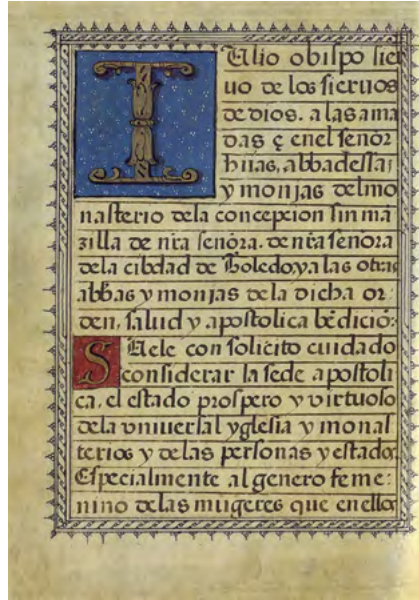 IUlio obispo sier
uo de los sieruos
de dios. a las ama
das ẽ enel señor
hijas, abbadessa
y monjas delmo
nasterio dela concepcion sin má
zilla de nr̃a señora. de nr̃a señora
dela cibdad de Toledo y a las otras
abb̃as y monjas de la dicha or
den, salud y apostolica bẽdiciõ:
SUele con solicito cuidado
considerar la sede apostoli
ca, el estado prospero y virtuoso
dela vniuersal yglesia y monas
terios y de las personas y estados
Especialmente al genero feme:
nino de las mugeres que en ellos